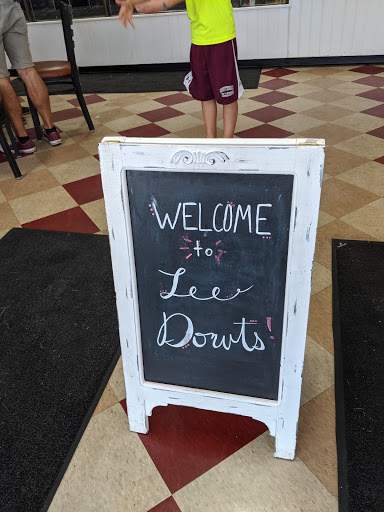 WELCOME
to
Lee
Donuts!